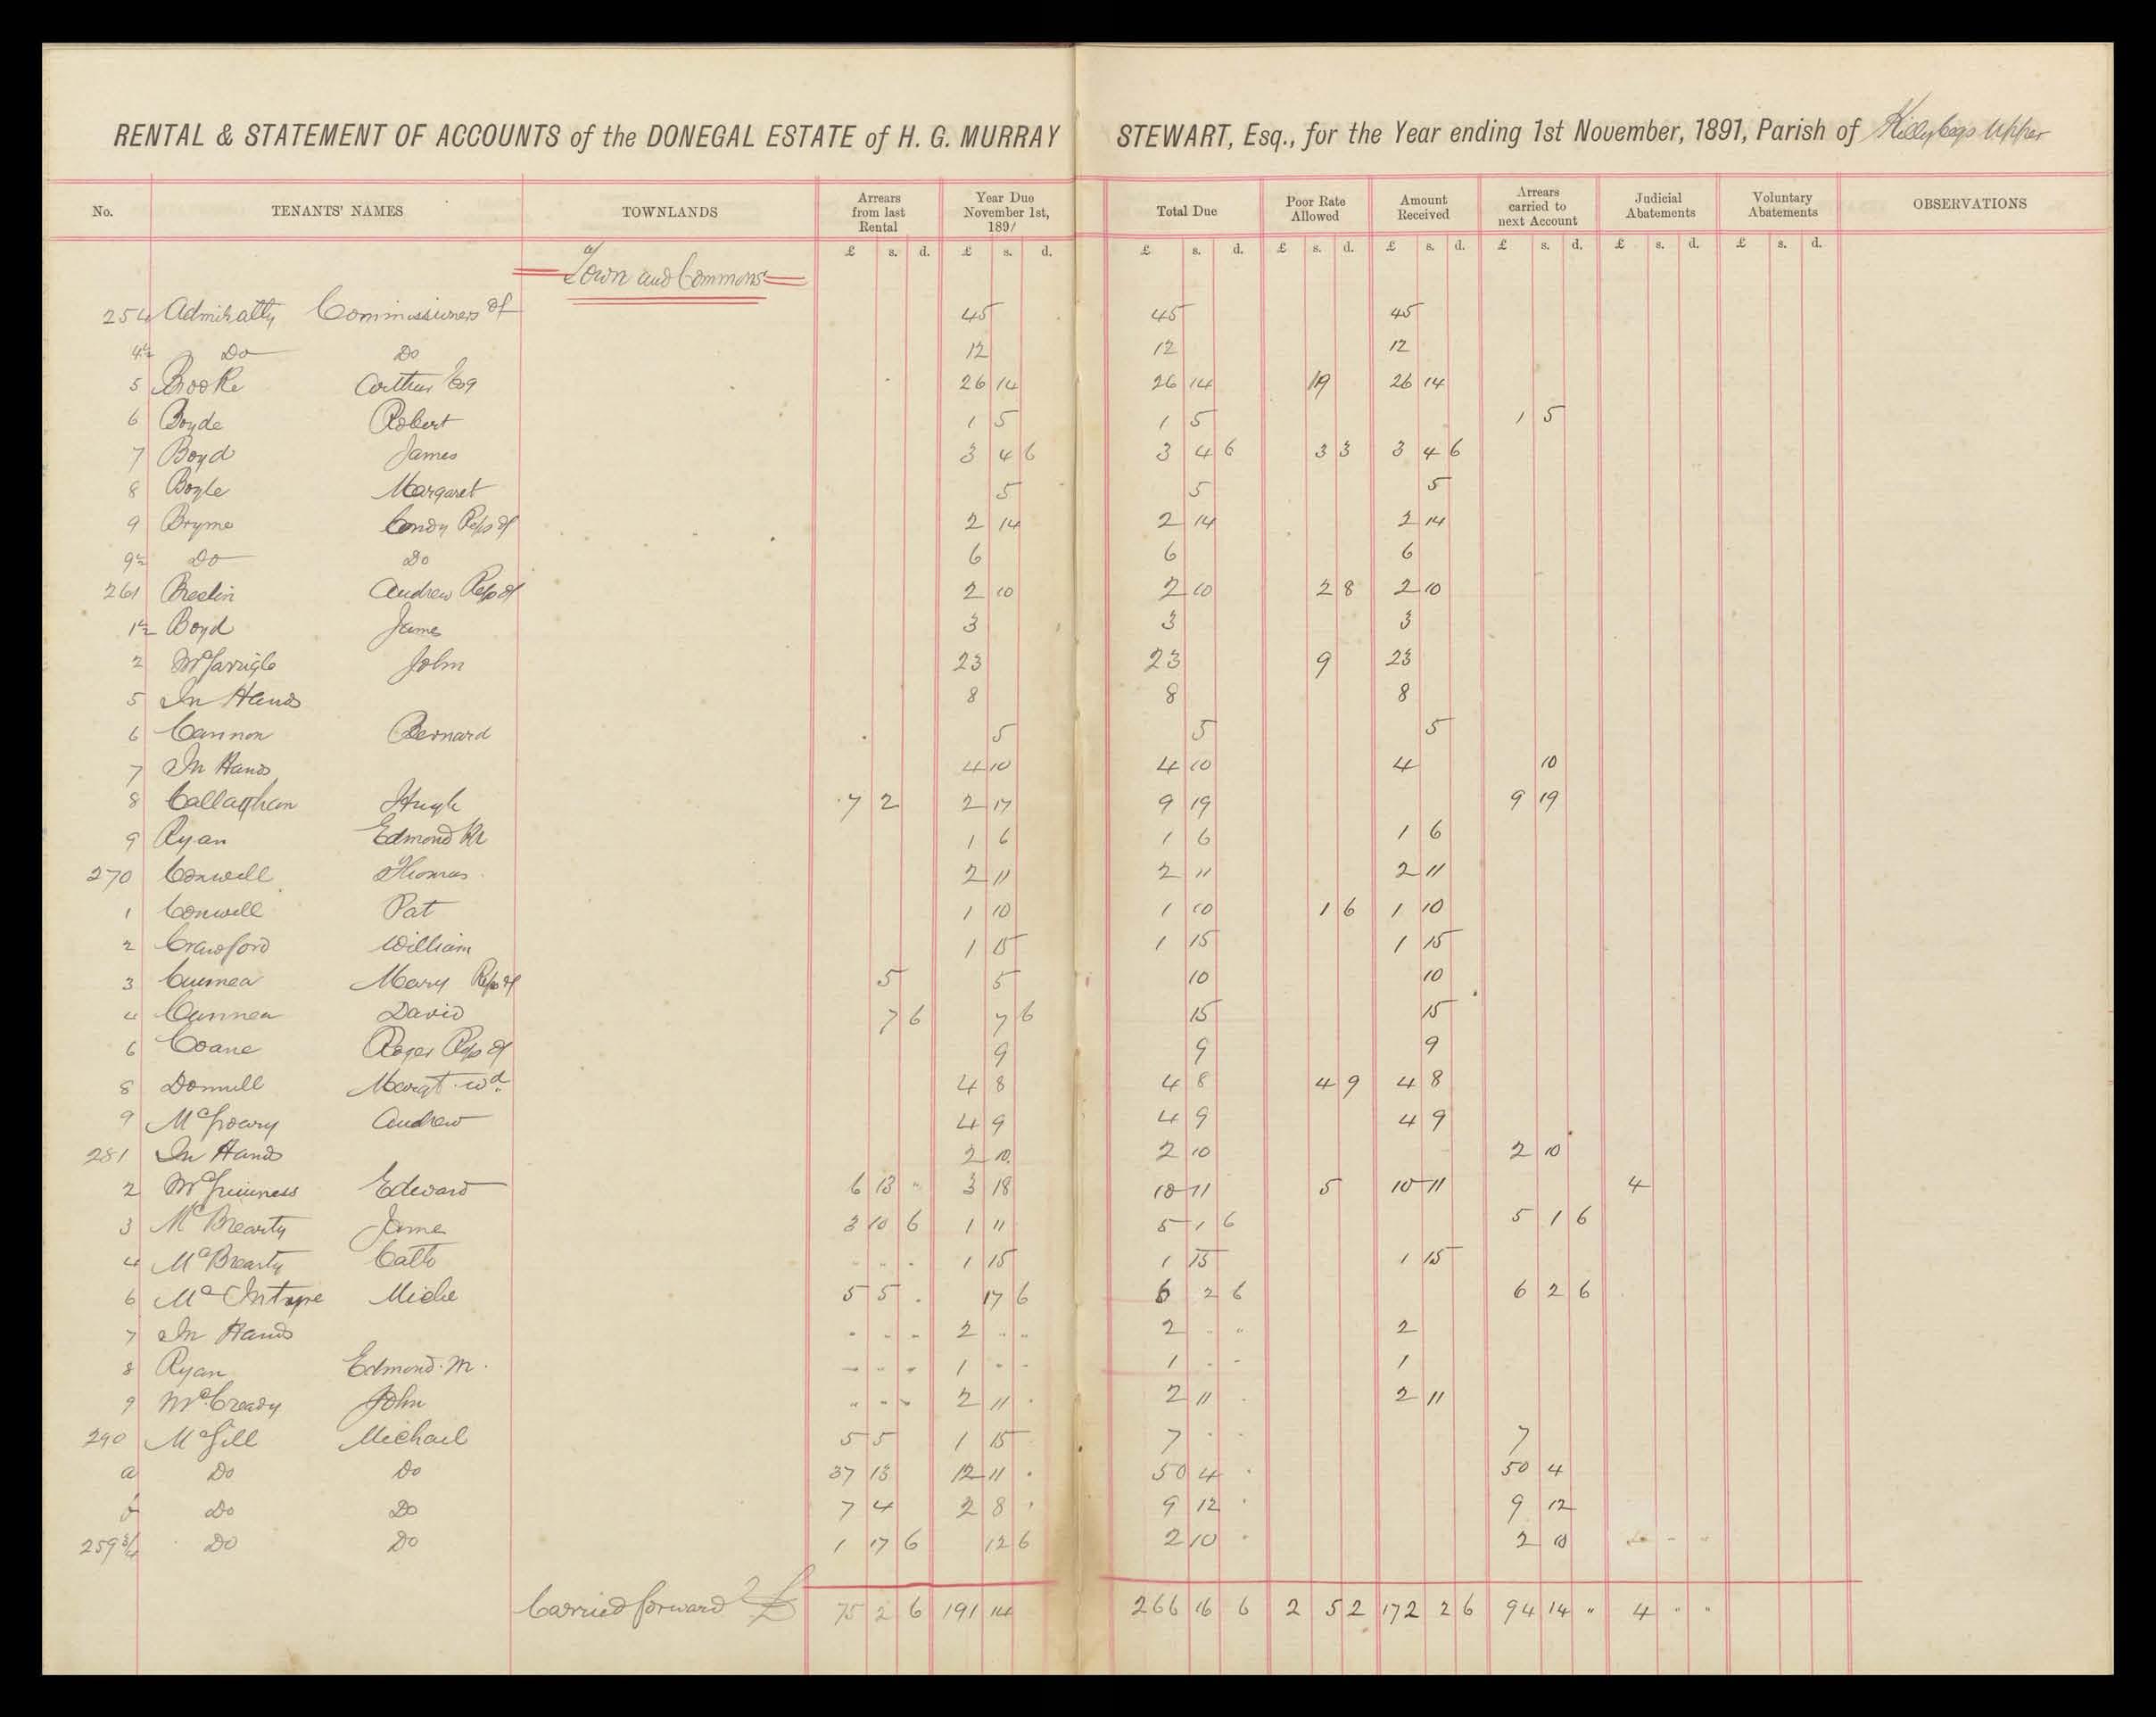 RENTAL & STATEMENT OF ACCOUNTS of the DONEGAL ESTATE of H. G. MURRAY STEWART, Esq., for the Year ending 1st November, 1891, Parish of Killybegs Upper
No. TENANTS' NAMES TOWNLANDS Arrears from last Rental Year Due November 1st, 1891 Total Due Poor Rate Allowed Amount Received Arrears carried to next Account Judicial Abatements Voluntary Abatements OBSERVATIONS
£ s. d. £ s. d. £ s. d. £ s. d. £ s. d. £ s. d. £ s. d. £ s. d.
Town and Commons
254 Admiralty Commissioners of 45 45 45
4½ Do Do 12 12 12
5 Brooke Arthur Esq 26 14 26 14 19 26 14
6 Boyde Robert 1 5 1 5 1 5
7 Boyd James 3 4 6 3 4 6 3 3 3 4 6
8 Boyle Margaret 5 5 5
9 Bryme Condy Reps of 2 14 2 14 2 14
9½ Do Do 6 6 6
261 Breslin Andrew Reps of 2 10 2 10 2 8 2 10
1½ Boyd James 3 3 3
2 McGarrigle John 23 23 9 23
5 In Hands 8 8 8
6 Cannon Bernard 5 5 5
7 In Hands 4 10 4 10 4 10
8 Callaghan Hugh 7 2 2 17 9 19 9 19
9 Ryan Edmond 1 6 1 6 1 6
270 Conwell Thomas 2 11 2 11 2 11
1 Conwell Pat 1 10 1 10 1 6 1 10
2 Crawford William 1 15 1 15 1 15
3 Cunnea Mary Reps of 5 5 10 10
4 Cunnea David 7 6 7 6 15 15
6 Coane Roger Reps of 9 9 9
8 Donnell Margt wd. 4 8 4 8 4 9 4 8
9 McGroary Andrew 4 9 4 9 4 9
281 In Hands 2 10 2 10 2 10
2 McGuinness Edward 6 13 " 3 18 10 11 5 10 11 4
3 McBrearty Jame 3 10 6 1 11 5 1 6 5 1 6
4 McBrearty Catto 1 15 1 15 1 15
6 McIntyre Miche 5 5 17 6 6 2 6 6 2 6
7 In Hands 2 2 2
8 Ryan Edmond. M. 1 1 1
9 McCready John 2 11 2 11 2 11
290 McGill Michael 5 5 1 15 7 7
a Do Do 37 13 12 11 50 4 50 4
b Do Do 7 4 2 8 9 12 9 12
259¾ Do Do 1 17 6 12 6 2 10 2 10
Carried forward £ 75 2 6 191 14 266 16 6 2 5 2 172 2 6 94 14 " 4 " "